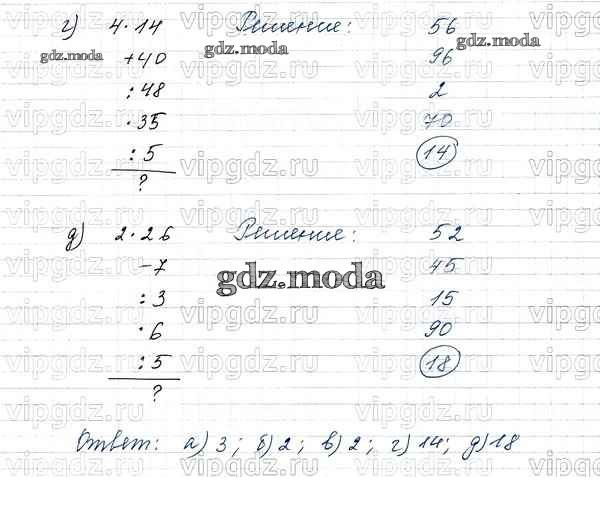 г) 4·14 Решение: 56
+40 96
gdz.moda gdz.moda gdz.moda
:48 2
·35 70
:5 14
?
д) 2·26 Решение: 52
-7 45
gdz.moda
:3 15
·6 90
:5 18
?
Ответ: а) 3; б) 2; в) 2; г) 14; д) 18